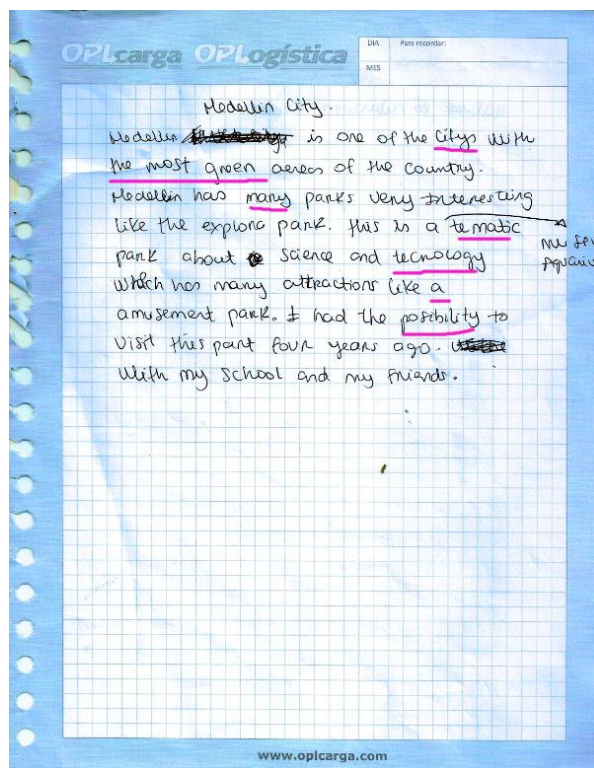 OPLcarga OPLogística
DIA Para recordar:
MES
Medellin City.
Medellin is one of the citys with
the most green aereas of the country.
Medellin has many parks very Interesting
like the explora park. this is a tematic
park about science and tecnology
which has many attractions like a
amusement park. I had the posibility to
visit this part four years ago.
with my school and my friends.
www.oplcarga.com